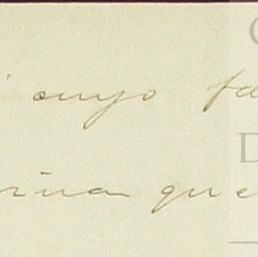 cuyo fa
rina que